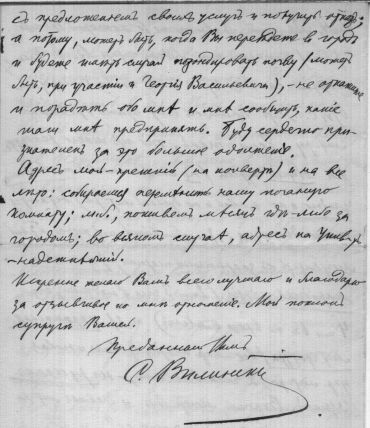 съ предложенiем своихъ услугъ и получить отказъ,
а потому, можетъ быть, когда Вы переѣдете в городъ
и будете имѣть случай позондировать почву (можетъ
быть, при участiи и Георгiя Васильевича), – не откажите
и порадѣть обо мнѣ и мнѣ сообщить, какiе
шаги мнѣ предпринять. Буду сердечно при-
знателенъ за это большое одолженiе.
Адресъ мой прежнiй (на конверте) и на все
лѣто: собираемся перемѣнить нашу поганую
комнату; поживемъ мѣсяцъ гдѣ-либо за
городомъ; во всякомъ случаѣ, адресъ на Универ.
– надежнѣйшiй.
Искренне желаю Вамъ всего лучшаго и благодарю
за отзывчивое ко мнѣ отношенiе. Мой поклонъ
супругѣ Вашей.
Преданный Вамъ
С. Вилинскiй